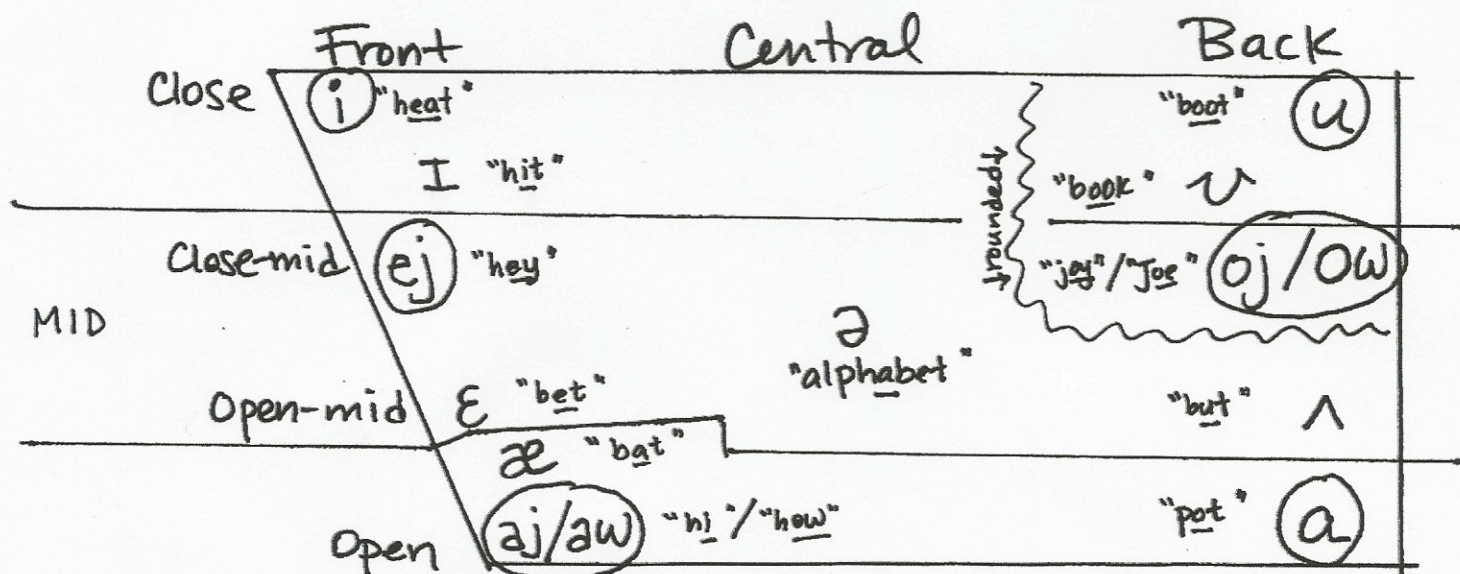 Front Central Back
Close i "heat" "boot" u
I "hit" "book" ʊ
rounded
Close-mid ej "hey" "joy"/"Joe" oj/ow
MID ə
"alphabet"
Open-mid ɛ "bet" "but" ʌ
æ "bat"
Open aj/aw "hi"/"how" "pot" a